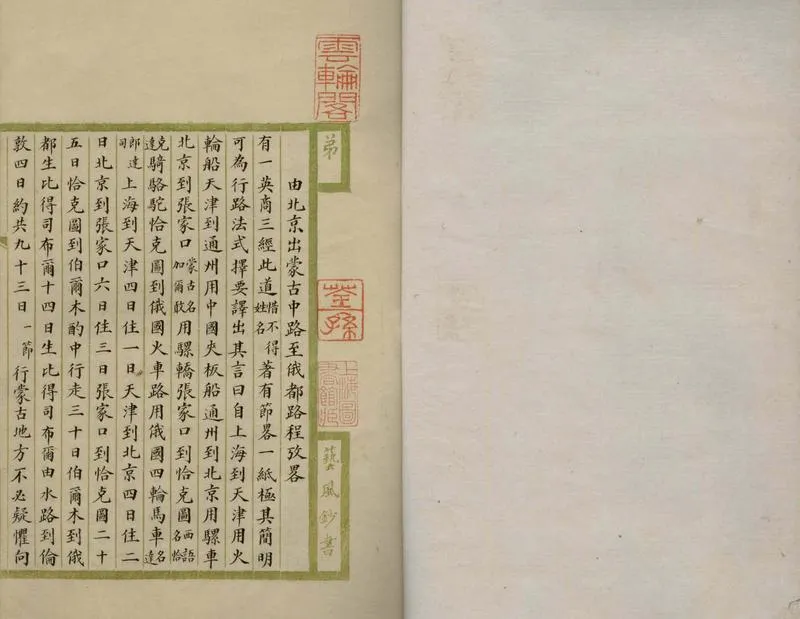 雲輪閣
弟
荃孫
上海圖書館藏
藝風鈔書
由北京出蒙古中路至俄都路程攷畧
有一英商三經此道惜不得姓名著有節畧一紙極其簡明
可為行路法式擇要譯出其言曰自上海到天津用火
輪船天津到通州用中國夾板船通州到北京用騾車
北京到張家口蒙古名加爾敢用騾轎張家口到恰克圖西語名恰
克達騎駱駝恰克圖到俄國火車路用俄國四輪馬車名達
郎達司上海到天津四日住一日天津到北京四日住二
日北京到張家口六日住三日張家口到恰克圖二十
五日恰克圖到伯爾木酌中行走三十日伯爾木到俄
都生比得司布爾十四日生比得司布爾由水路到倫
敦四日約共九十三日一節行蒙古地方不必疑懼向